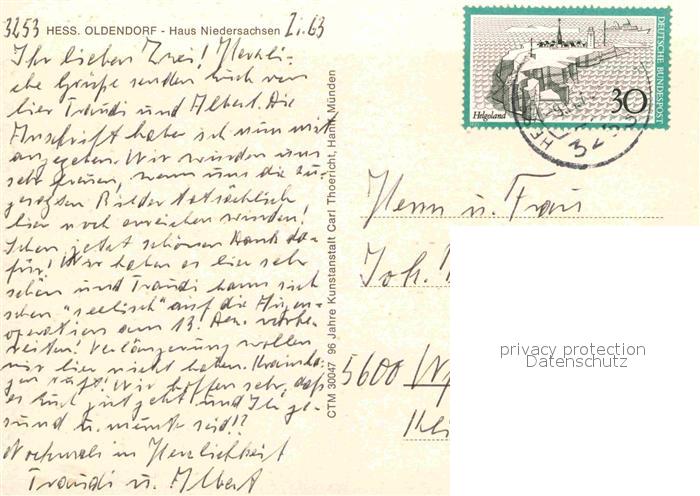 3253 HESS. OLDENDORF - Haus Niedersachsen Zi. 63
Ihr lieben Zwei! Herzli-
che Grüße senden Euch von
hier Traudi und Albert. Die
Anschrift haben ich nun mit
angegeben. Wir würden uns
sehr freuen, wenn uns die zu-
gesagten Bilder tatsächlich
hier noch erreichen würden!
Schon jetzt schönen Dank da-
für! Wir haben es hier sehr
schön und Traudi kann sich
schon "seelisch" auf die Augen-
operation am 13. Dez. vorbe-
reiten! Verlängerung wollen
wir hier nicht haben.
ruft! Wir hoffen sehr, daß
es Euch gut geht und Ihr ge-
sund u. munter seid!!
Nochmals in Herzlichkeit
Traudi u. Albert
CTM 30047 96 Jahre Kunstanstalt Carl Thoericht, Hann. Münden
DEUTSCHE BUNDESPOST
30
Helgoland
Herrn u. Frau
Joh.
5600
privacy protection
Datenschutz